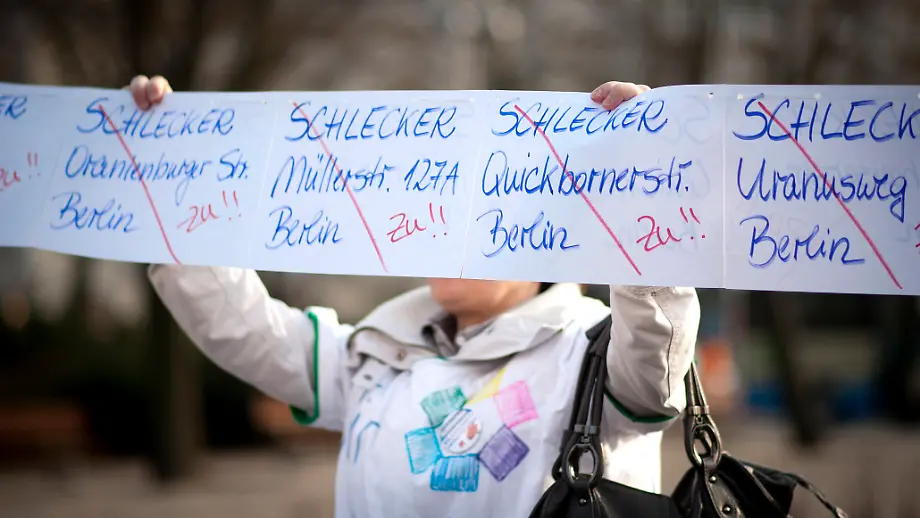 SCHLECKER
Oranienburger Str.
Berlin
zu!!
SCHLECKER
Müllerstr. 127A
Berlin
zu!!
SCHLECKER
Quickbornerstr.
Berlin
zu!!
SCHLECK
Uranusweg
Berlin